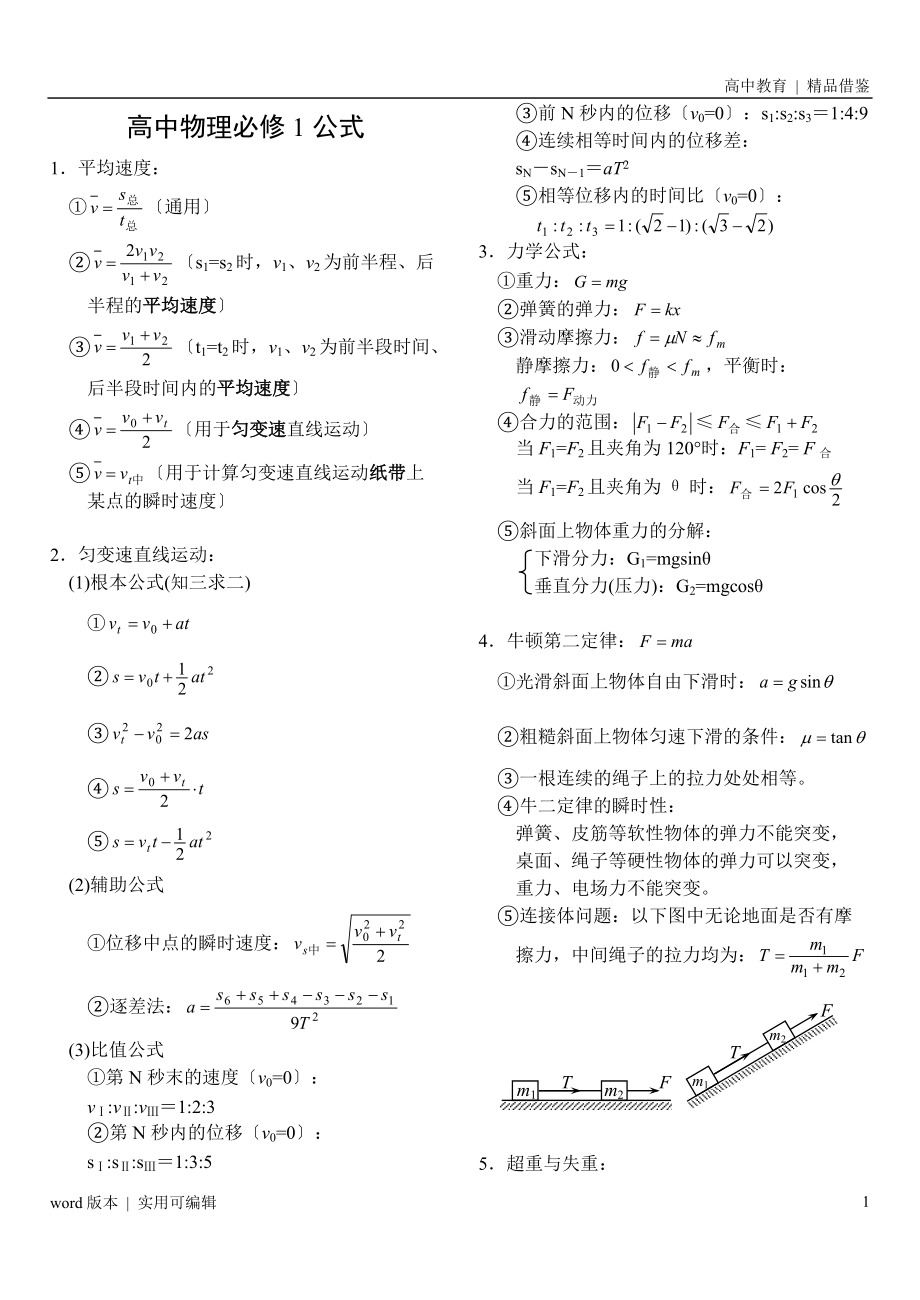 高中教育 | 精品借鉴
高中物理必修 1 公式
1．平均速度：
① v̄ = s总/t总〔通用〕
② v̄ = 2v₁v₂/(v₁+v₂)〔s₁=s₂时，v₁、v₂为前半程、后
半程的平均速度〕
③ v̄ = (v₁+v₂)/2〔t₁=t₂时，v₁、v₂为前半段时间、
后半段时间内的平均速度〕
④ v̄ = (v₀+vₜ)/2〔用于匀变速直线运动〕
⑤ v̄ = vₜ中〔用于计算匀变速直线运动纸带上
某点的瞬时速度〕
2．匀变速直线运动：
(1)根本公式(知三求二)
① vₜ = v₀ + at
② s = v₀t + 1/2 at²
③ vₜ² − v₀² = 2as
④ s = (v₀+vₜ)/2 · t
⑤ s = vₜt − 1/2 at²
(2)辅助公式
①位移中点的瞬时速度：vₛ中 = √((v₀²+vₜ²)/2)
②逐差法：a = (s₆+s₅+s₄−s₃−s₂−s₁)/9T²
(3)比值公式
①第 N 秒末的速度〔v₀=0〕：
vⅠ:vⅡ:vⅢ＝1:2:3
②第 N 秒内的位移〔v₀=0〕：
sⅠ:sⅡ:sⅢ＝1:3:5
③前 N 秒内的位移〔v₀=0〕：s₁:s₂:s₃＝1:4:9
④连续相等时间内的位移差：
s_N－s_N－1＝aT²
⑤相等位移内的时间比〔v₀=0〕：
t₁ : t₂ : t₃ = 1 : (√2−1) : (√3−√2)
3．力学公式：
①重力：G = mg
②弹簧的弹力：F = kx
③滑动摩擦力：f = μN ≈ fₘ
静摩擦力：0 < f静 < fₘ，平衡时：
f静 = F动力
④合力的范围：|F₁ − F₂| ≤ F合 ≤ F₁ + F₂
当 F₁=F₂且夹角为 120°时：F₁= F₂= F 合
当 F₁=F₂且夹角为 θ 时：F合 = 2F₁ cos θ/2
⑤斜面上物体重力的分解：
下滑分力：G₁=mgsinθ
垂直分力(压力)：G₂=mgcosθ
4．牛顿第二定律：F = ma
①光滑斜面上物体自由下滑时：a = g sin θ
②粗糙斜面上物体匀速下滑的条件：μ = tan θ
③一根连续的绳子上的拉力处处相等。
④牛二定律的瞬时性：
弹簧、皮筋等软性物体的弹力不能突变，
桌面、绳子等硬性物体的弹力可以突变，
重力、电场力不能突变。
⑤连接体问题：以下图中无论地面是否有摩
擦力，中间绳子的拉力均为：T = m₁/(m₁+m₂) F
m₁ T m₂ F
m₁ T m₂ F
5．超重与失重：
word 版本 | 实用可编辑
1